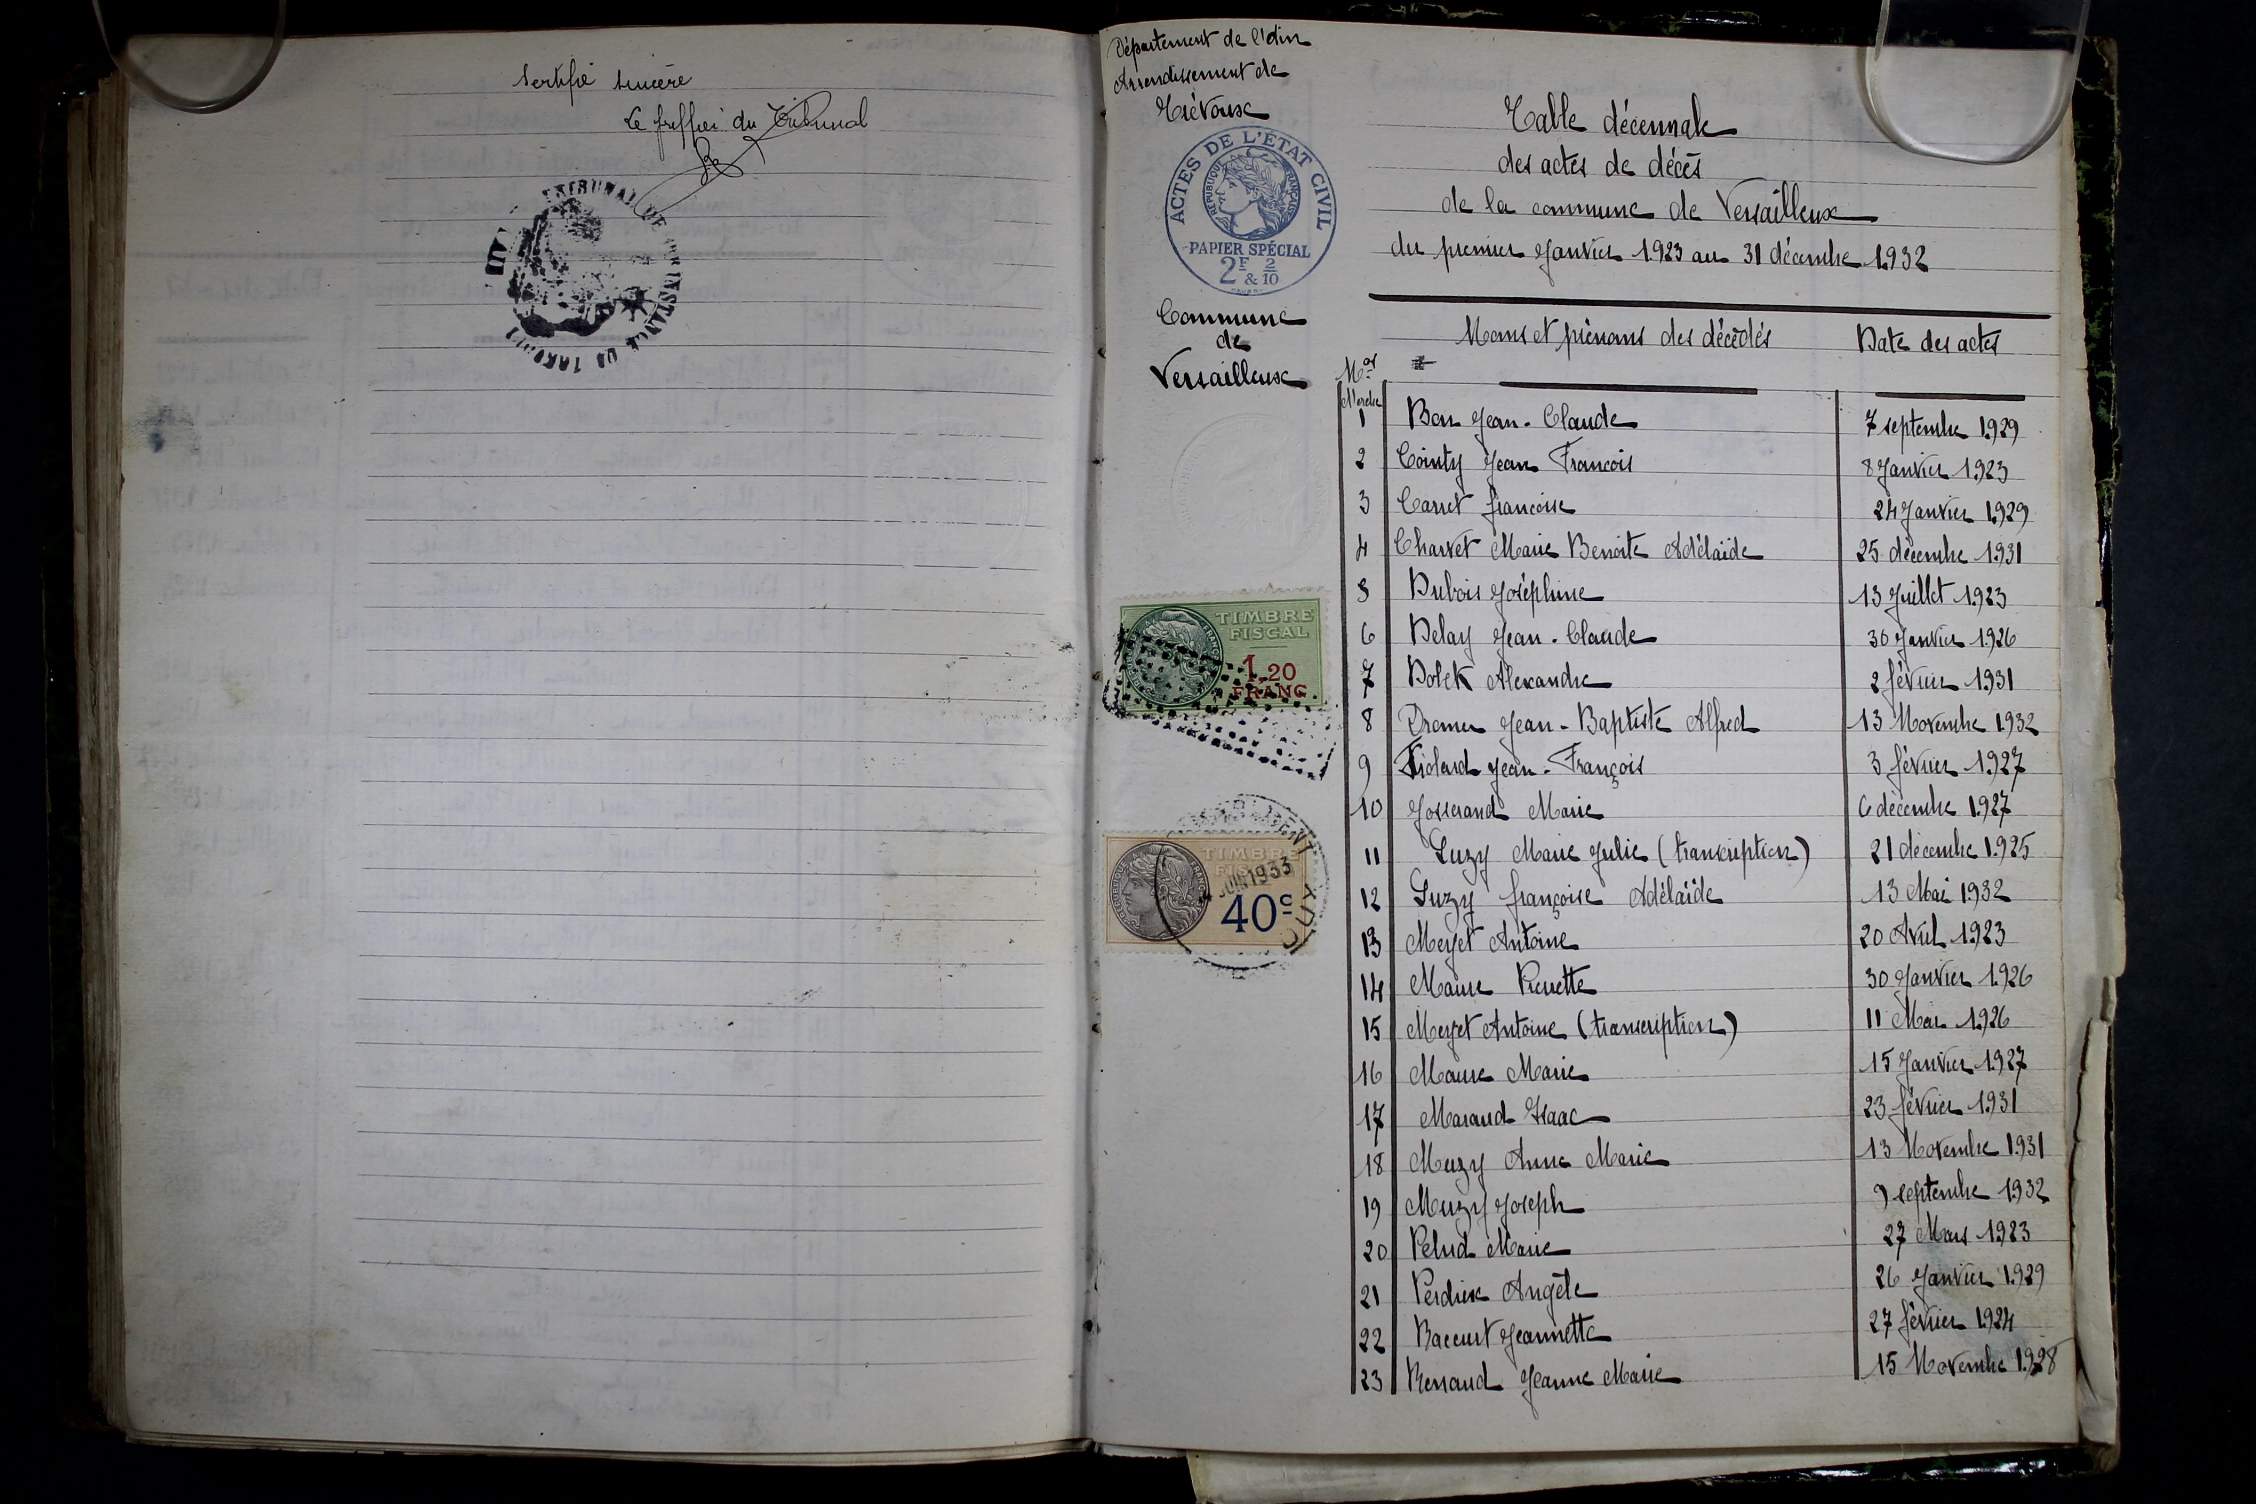 Certifié sincère
Le greffier du Tribunal
TRIBUNAL DE 1re INSTANCE DE TREVOUX
Département de l'Ain
Arrondissement de
Trévoux
ACTES DE L'ÉTAT CIVIL
RÉPUBLIQUE FRANÇAISE
PAPIER SPÉCIAL
2F & 2/10
Commune
de
Versailleux
TIMBRE
FISCAL
1.20
FRANC
TIMBRE
FISCAL
JUIN 1933
40c
Table décennale
des actes de décès
de la commune de Versailleux
du premier Janvier 1923 au 31 décembre 1932
Nos d'ordre Noms et prénoms des décédés Date des actes
1 Bon Jean-Claude 7 septembre 1929
2 Cointy Jean Francois 8 Janvier 1923
3 Carret francoise 24 Janvier 1929
4 Charvet Marie Benoite Adélaïde 25 décembre 1931
5 Dubois Joséphine 13 Juillet 1923
6 Delay Jean-Claude 30 Janvier 1926
7 Dolek Alexandre 2 février 1931
8 Dromer Jean-Baptiste Alfred 13 Novembre 1932
9 Fiolard Jean-François 3 février 1927
10 Josserand Marie 6 décembre 1927
11 Luzy Marie Julie (transcription) 21 décembre 1925
12 Luzy françoise Adélaïde 13 Mai 1932
13 Meyet Antoine 20 Avril 1923
14 Maire Pierrette 30 Janvier 1926
15 Meyet Antoine (transcription) 11 Mai 1926
16 Maire Marie 15 Janvier 1927
17 Maraud Isaac 23 février 1931
18 Muzy Anne Marie 13 Novembre 1931
19 Muzy Joseph 9 septembre 1932
20 Pelud Marie 27 Mars 1923
21 Perdrix Angèle 26 Janvier 1929
22 Raccurt Jeannette 27 février 1924
23 Renaud Jeanne Marie 15 Novembre 1928